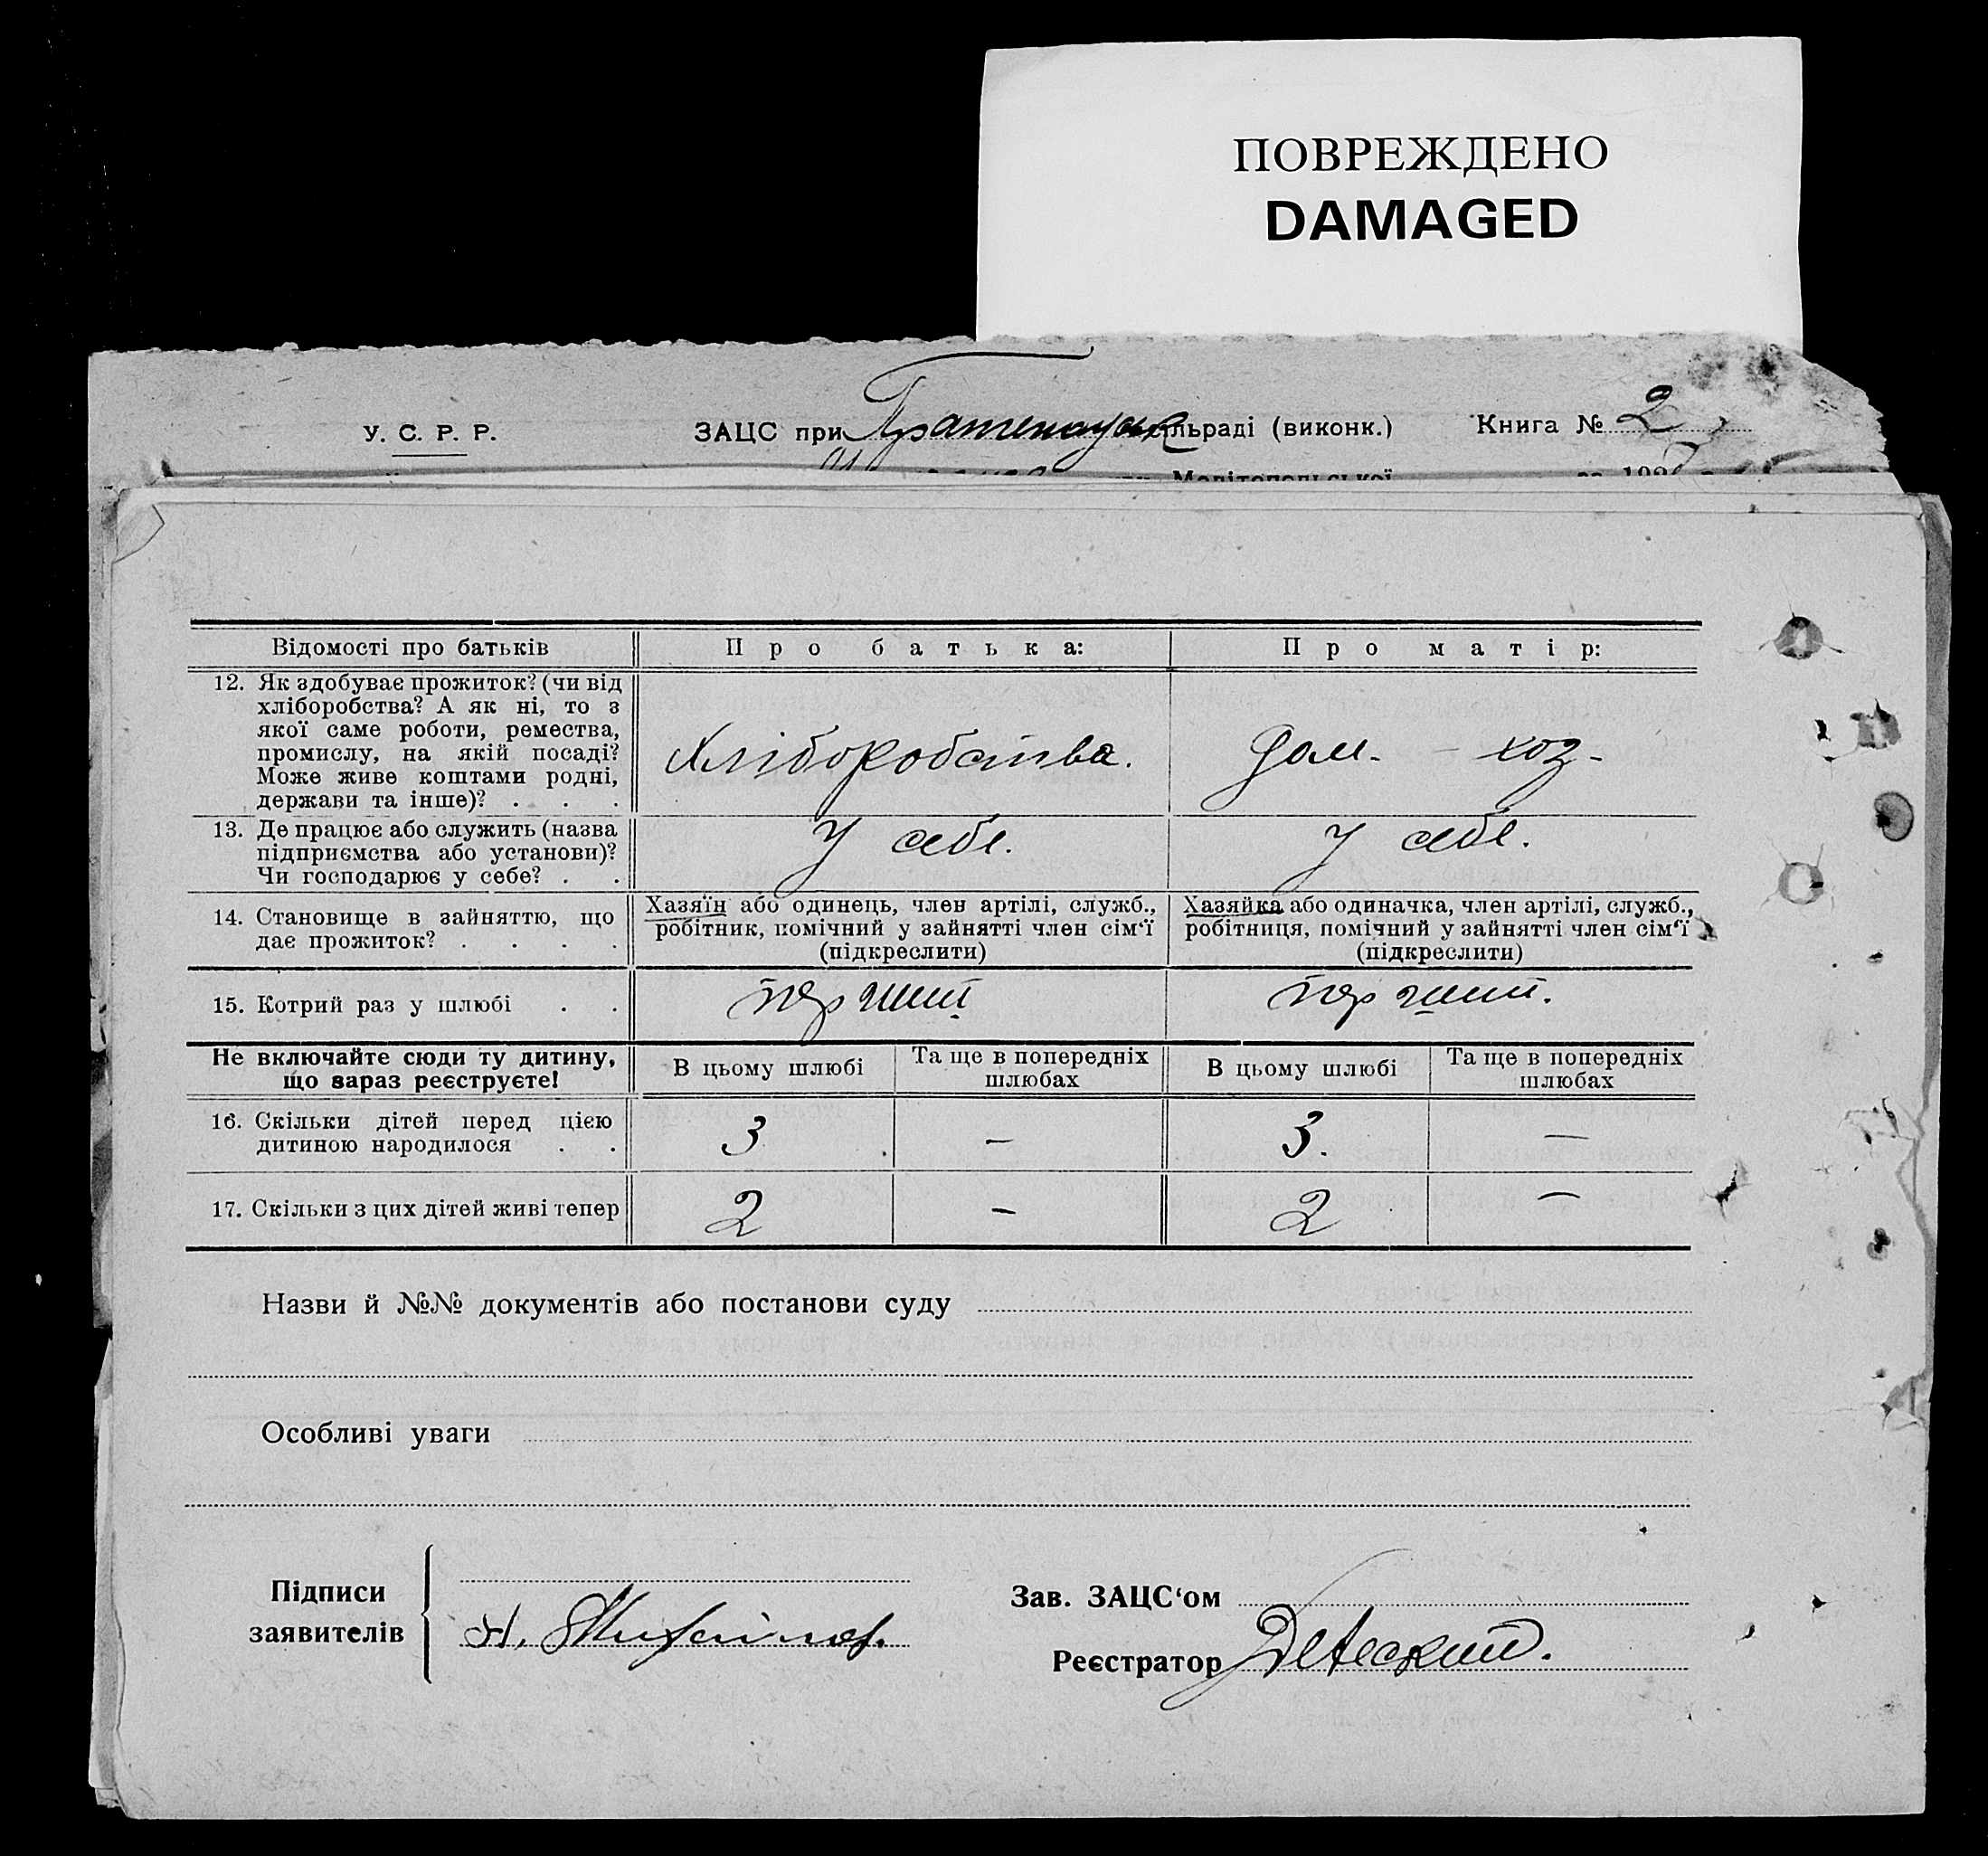 ПОВРЕЖДЕНО
DAMAGED
У. С. Р. Р. ЗАЦС при льраді (виконк.) Книга № 2
Мелітопольської
Відомості про батьків Про батька: Про матір:
12. Як здобуває прожиток? (чи від
хліборобства? А як ні, то з
якої саме роботи, ремества,
промислу, на якій посаді?
Може живе коштами родні,
держави та інше)? . . .
Хліборобства. Дом. - хоз.
13. Де працює або служить (назва
підприємства або установи)?
Чи господарює у себе? . .
У себе. У себе.
14. Становище в зайняттю, що
дає прожиток? . . . .
Хазяїн або одинець, член артілі, служб.,
робітник, помічний у зайнятті член сім'ї
(підкреслити)
Хазяйка або одиначка, член артілі, служб.,
робітниця, помічний у зайнятті член сім'ї
(підкреслити)
15. Котрий раз у шлюбі . . перший перший.
Не включайте сюди ту дитину,
що зараз реєструєте!
В цьому шлюбі Та ще в попередніх
шлюбах
В цьому шлюбі Та ще в попередніх
шлюбах
16. Скільки дітей перед цією
дитиною народилося . .
3 — 3. —
17. Скільки з цих дітей живі тепер 2 — 2 —
Назви й №№ документів або постанови суду
Особливі уваги
Підписи
заявителів
Зав. ЗАЦС'ом
Реєстратор